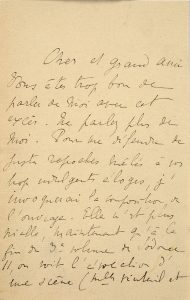 Cher et grand ami
Vous êtes trop bon de
parler de moi avec cet
excès. Ne parlez plus de
moi. Pour me défendre de
justes reproches mêlés à vos
trop indulgents éloges, j'
invoquerai la composition de
l'ouvrage. Elle n'est puis
qu'à la
fin du 3e volume de
on voit l'
une scène (Mlle Vinteuil et